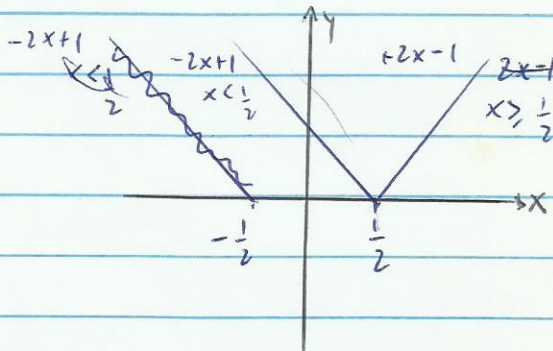 y
-2x+1
x < 1/2
-2x+1
x < 1/2
+2x-1
2x-1
x ≥ 1/2
x
-1/2
1/2